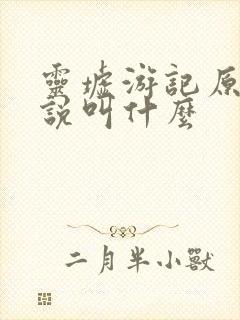 靈墟游記原
說叫什麼
二月半小獸